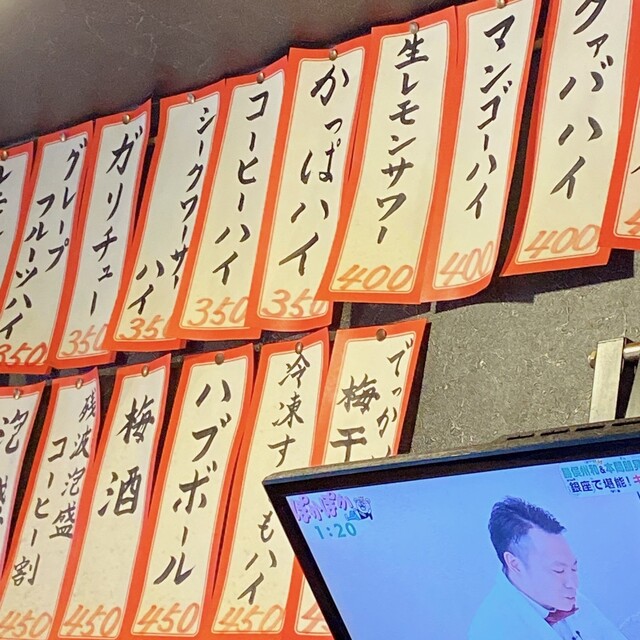 グァバハイ
400
マンゴーハイ
400
生レモンサワー
400
かっぱハイ
350
コーヒーハイ
350
シークワーサー
ハイ
350
ガリチュー
350
グレープ
フルーツハイ
350
でっかい
梅干
冷凍す
もハイ
450
ハブボール
450
梅酒
450
残波泡盛
コーヒー割
450
泡盛
450
ぽかぽか
1:20
銀座で堪能!